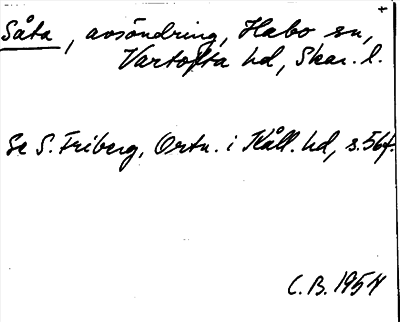 Såta, avsöndring, Habo sn,
Vartofta hd, Skar. l.
Se S. Friberg, Ortn. i Kåll. hd, s. 56f.
C. B. 1954